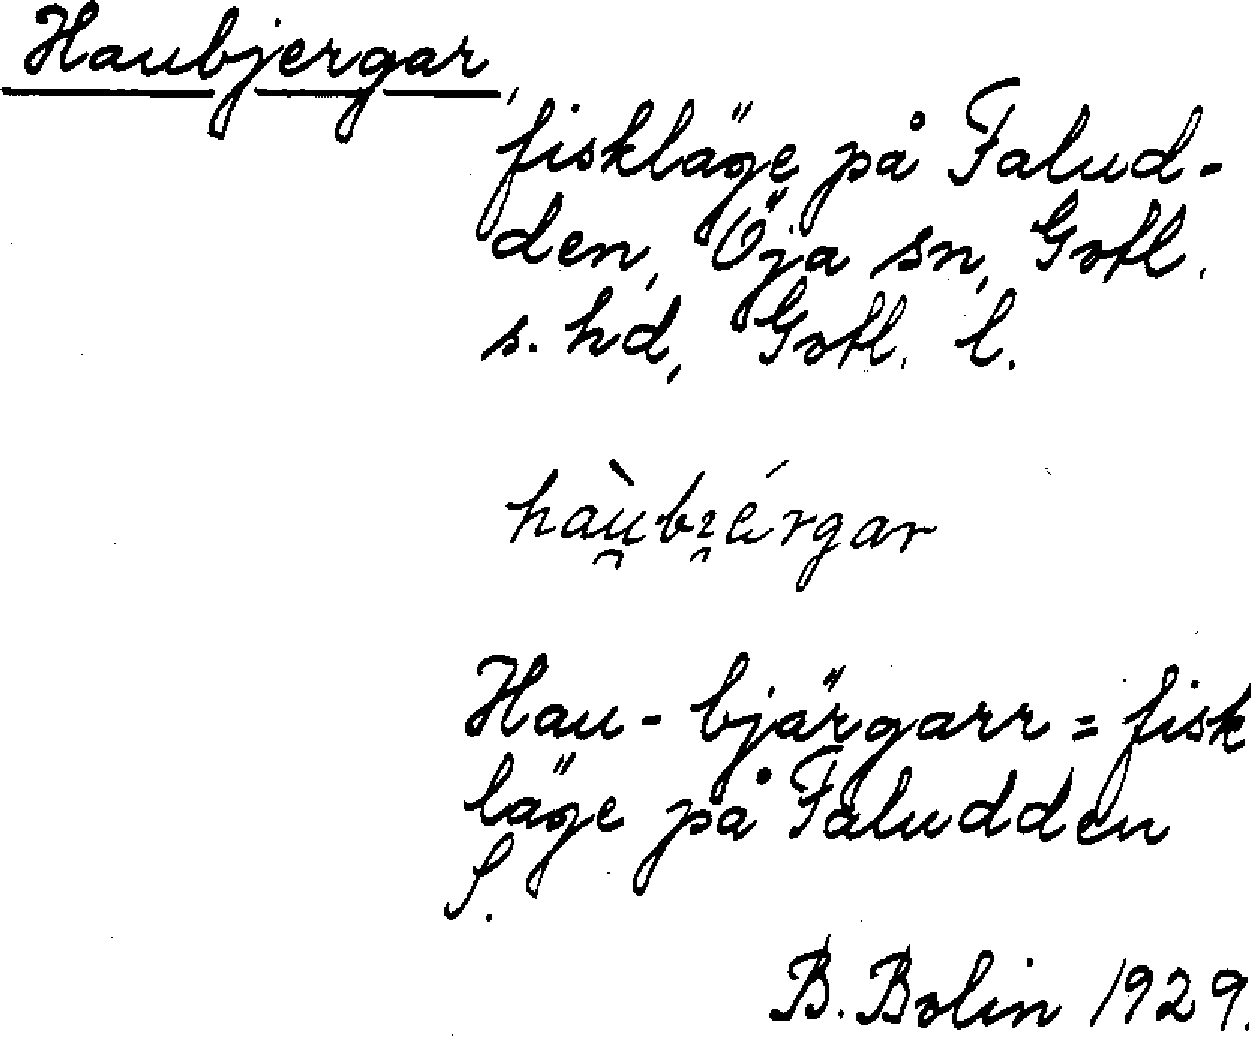 Haubjergar,
fiskläge på Falud-
den, Öja sn, Gotl.
s. hd, Gotl. l.
haù̯bi̯érgar
Hau-bjärgarr = fisk
läge på Faludden
S.
B. Bolin 1929.